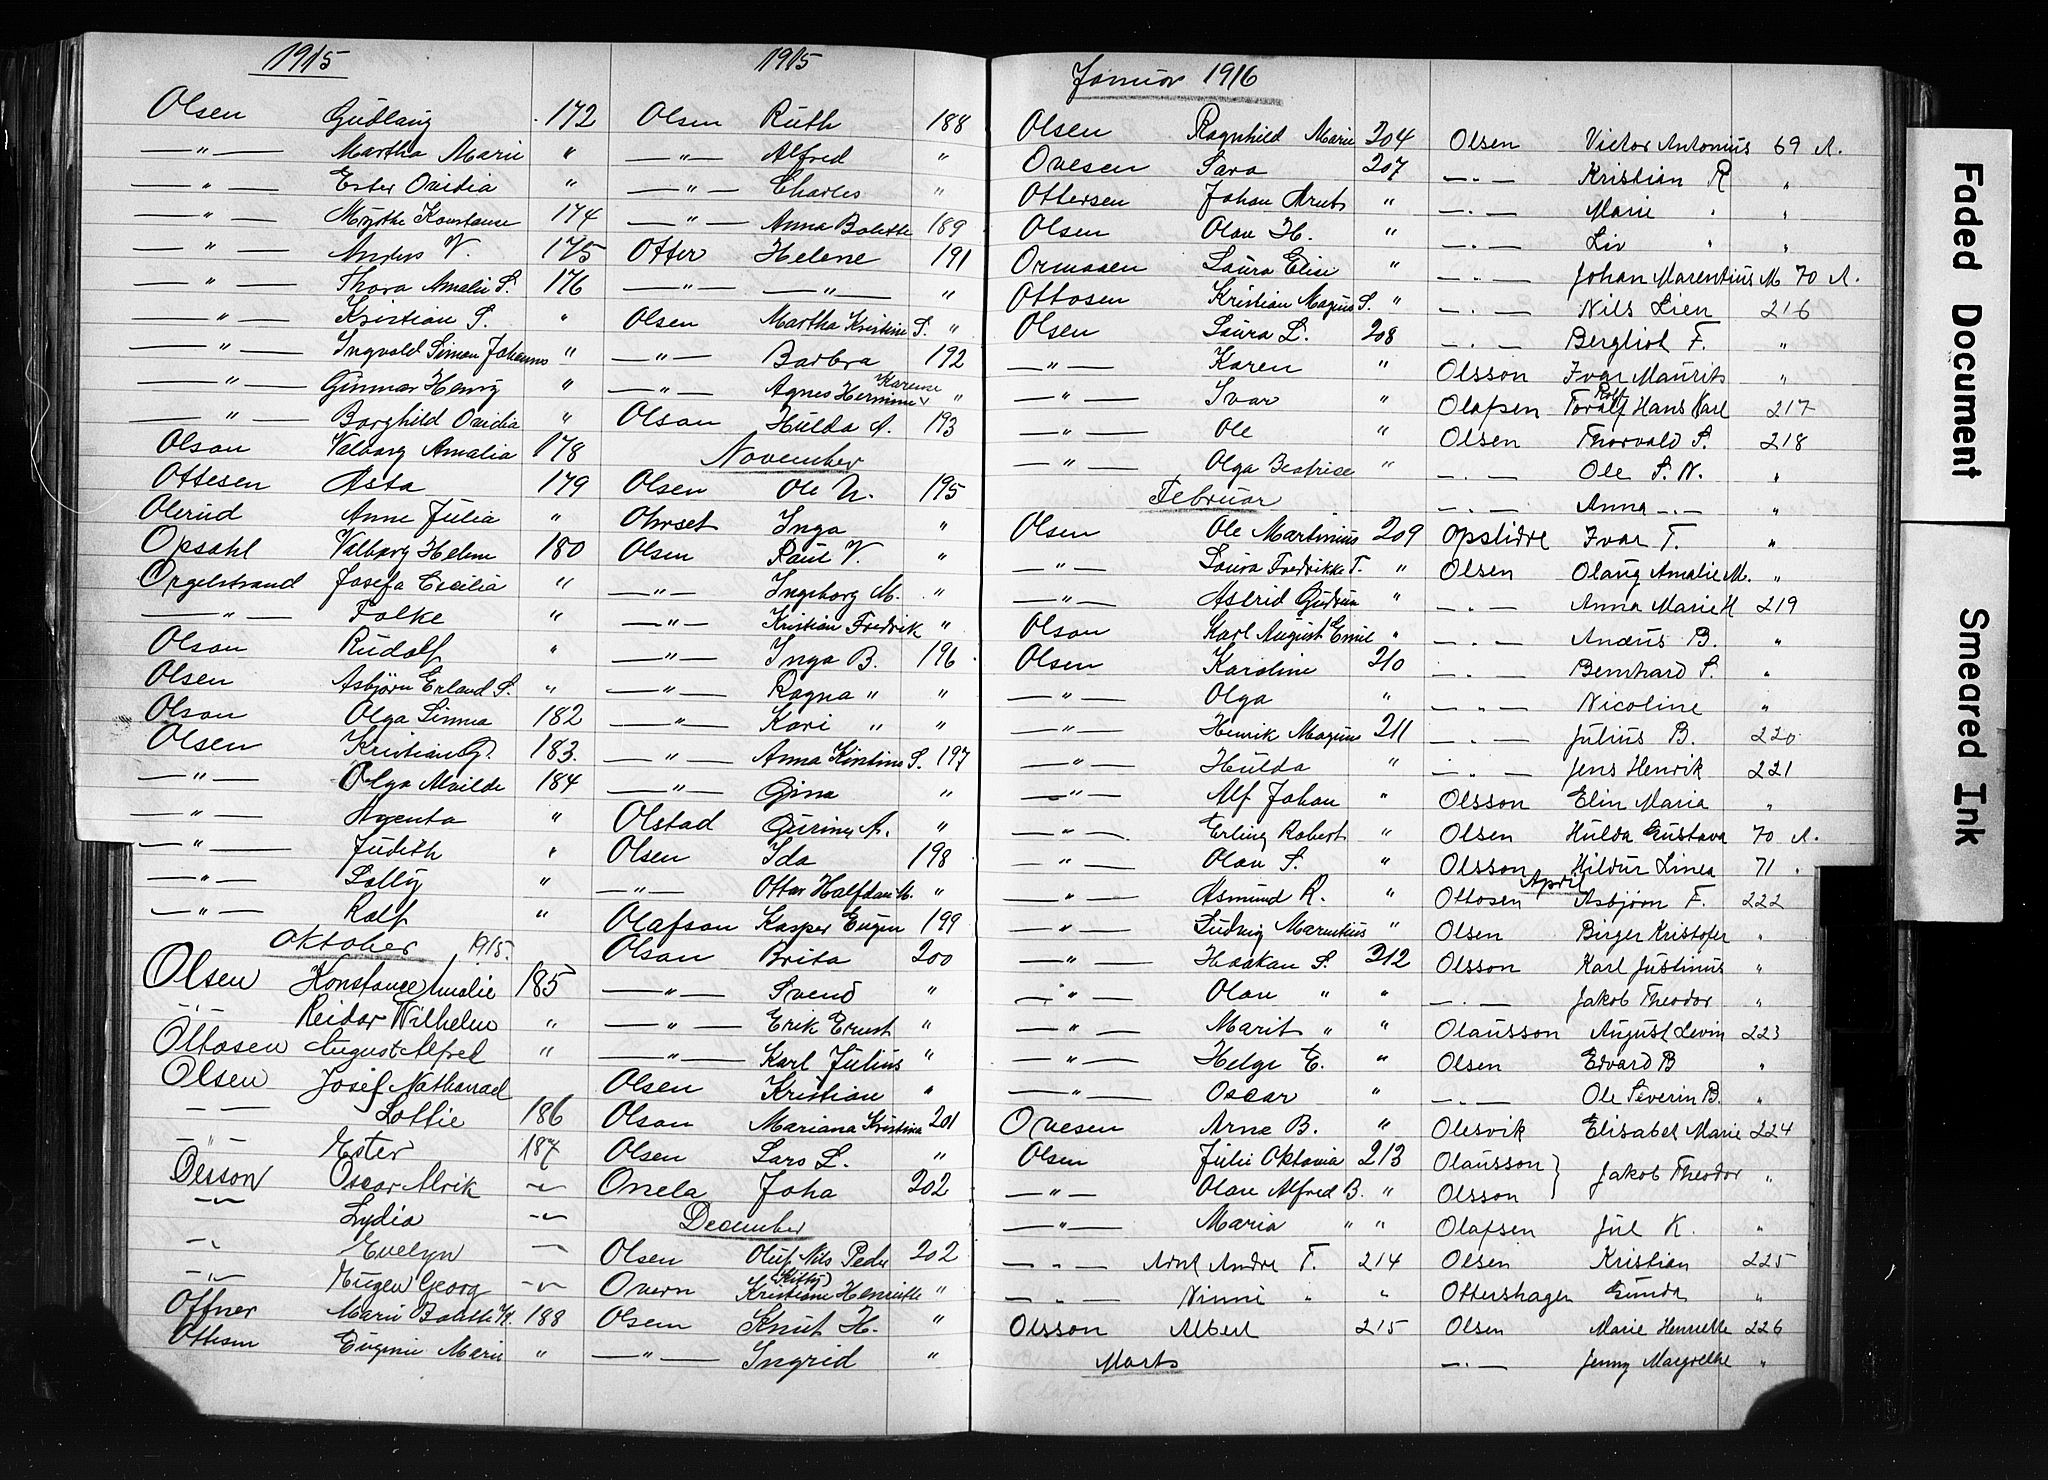 1915
Olsen Gudlaug 172
—"— Martha Marie "
—"— Ester Ovidia "
—"— Konstanse 174
—"— Anders V. 175
—"— Thora Amalie S. 176
—"— Kristian S. "
—"— Ingvald Simon Johannes "
—"— Gunnar Henry "
—"— Borghild Ovidia "
Olson Valborg Amalia 178
Ottesen Asta 179
Olerud Anne Julia "
Opsahl Valborg Helene 180
Orgelstrand Josefa Cecilia "
—"— Folke "
Olson Rudolf "
Olsen Asbjørn Erland S. "
Olson Olga Linnea 182
Olsen Kristian G. 183.
—"— Olga Alvilde 184
—"— Agenta "
—"— Judith "
—"— Solly "
—"— Rolf "
Oktober 1915.
Olsen Konstance Amalie 185
—"— Reidar Wilhelm "
Ottosen August Alfred "
Olsen Josef Nathanael
— — Lottie 186
—"— Ester 187
Olsson Oscar Alrik —"—
—"— Lydia —"—
—"— Evelyn —"—
—"— Eugen Georg —"—
Offner Marie Bolette K. 188
Ottesen Eugenie Marie "
1915
Olsen Ruth 188
—"— Alfred "
—"— Charles "
—"— Anna Bolette 189
Otter Helene 191
—"— —"— "
Olsen Martha Kristine S. "
—"— Barbra 192
—"— Agnes Hermine Karene "
Olson Hulda A. 193
November
Olsen Ole N. 195
Ohrset Inga "
Olsen Paul V. "
—"— Ingeborg M. "
—"— Kristian Fredrik "
—"— Inga B. 196
—"— Ragna " "
—"— Kari " "
—"— Anna Kristine S. 197
—"— Gina "
Olstad Gurine A. "
Olsen Ida 198
—"— Ottar Halfdan M. "
Olafson Kasper Eugen 199
Olson Brita 200
—"— Svend "
—"— Erik Ernst "
—"— Karl Julius "
Olsen Kristian "
Olson Mariana Kristina 201
Olsen Lars L. "
Onela Joha 202
December
Olsen Oluf Nils Peder 202
Overn Kristiane (Kitty) Henriette "
Olsen Knut H. "
—"— Ingrid "
Januar 1916
Olsen Ragnhild Marie 204
Ovesen Sara 207
Ottersen Johan Arnt "
Olsen Olav H. "
Ormaasen Laura Elise "
Ottosen Kristian Magnus S. "
Olsen Laura L. 208
—"— Karen "
—"— Ivar "
—"— Ole "
—"— Olga Beatrise "
Februar
Olsen Ole Martinius 209
—"— Laura Fredrikke T. "
—"— Astrid Gudrun "
Olson Karl August Emil "
Olsen Karoline 210
—"— Olga "
—"— Henrik Magnus 211
—"— Hulda "
—"— Alf Johan "
—"— Erling Robert "
—"— Olav S. "
—"— Asmund R. "
—"— Ludvig Marentius "
—"— Haakan S. 212
—"— Olav " "
—"— Marit " "
—"— Helge E. "
—"— Oscar "
Ovesen Arne B. "
Olsen Julie Oktavia 213
—"— Olav Alfred B. "
—"— Maria " "
—"— Arnt Andre T. 214
—"— Ninni " "
Olsson Albert 215
Marts
Olsen Victor Antonius 69 A.
—"— Kristian R "
—"— Marie " "
—"— Liv " "
—"— Johan Marentius M 70 A.
—"— Nils Lien 216
—"— Bergliot F. "
Olsson Ivar Maurits "
Olafsen Toralf Rolf Hans Karl 217
Olsen Thorvald S. 218
—"— Ole S. N. "
—"— Anna —"— "
Opslidre Ivar T. "
Olsen Olaug Amalie M. "
—"— Anna Marie H 219
—"— Anæus B. "
—"— Bernhard S. "
—"— Nicoline "
—"— Julius B. 220
—"— Jens Henrik 221
Olsson Elin Maria "
Olsen Hulda Gustava 70 A.
Olsson Hildur Linea 71 "
April
Ottosen Asbjørn F. 222
Olsen Birger Kristofer "
Olsson Karl Justinus "
—"— Jakob Theodor "
Olausson August Levin 223
Olsen Edvard B "
—"— Ole Severin B. "
Olesvik Elisabet Marie 224
Olausson } Jakob Theodor "
Olsson }
Olafsen Jul K. "
Olsen Kristian 225
Ottershagen Gunda "
Olsen Marie Henrette 226
—"— Jenny Margrethe "
Faded Document
Smeared Ink